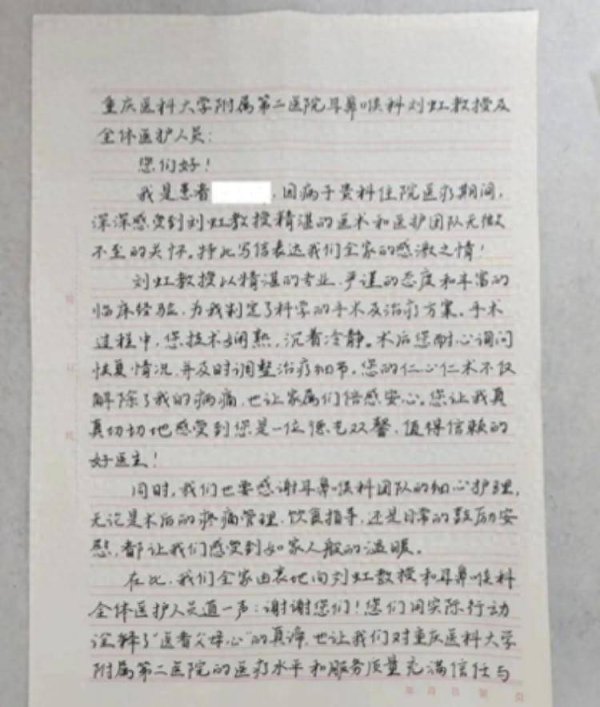 重庆医科大学附属第二医院耳鼻喉科刘虹教授及
全体医护人员：
您们好！
我是患者，因病于贵科住院医疗期间，
深深感受到刘虹教授精湛的医术和医护团队无微
不至的关怀。特此写信表达我们全家的感激之情！
刘虹教授以精湛的专业，严谨的态度和丰富的
临床经验，为我制定了科学的手术及治疗方案。手术
过程中，您技术娴熟，沉着冷静。术后您耐心询问
恢复情况，并及时调整治疗细节。您的仁心仁术不仅
解除了我的病痛，也让家属们倍感安心。您让我真
真切切地感受到您是一位德艺双馨，值得信赖的
好医生！
同时，我们也要感谢耳鼻喉科团队的细心护理，
无论是术后的疼痛管理，饮食指导，还是日常的鼓励安
慰，都让我们感受到如家人般的温暖。
在此，我们全家由衷地向刘虹教授和耳鼻喉科
全体医护人员道一声：谢谢您们！您们用实际行动
诠释了“医者父母心”的真谛，也让我们对重庆医科大学
附属第二医院的医疗水平和服务质量充满信任与